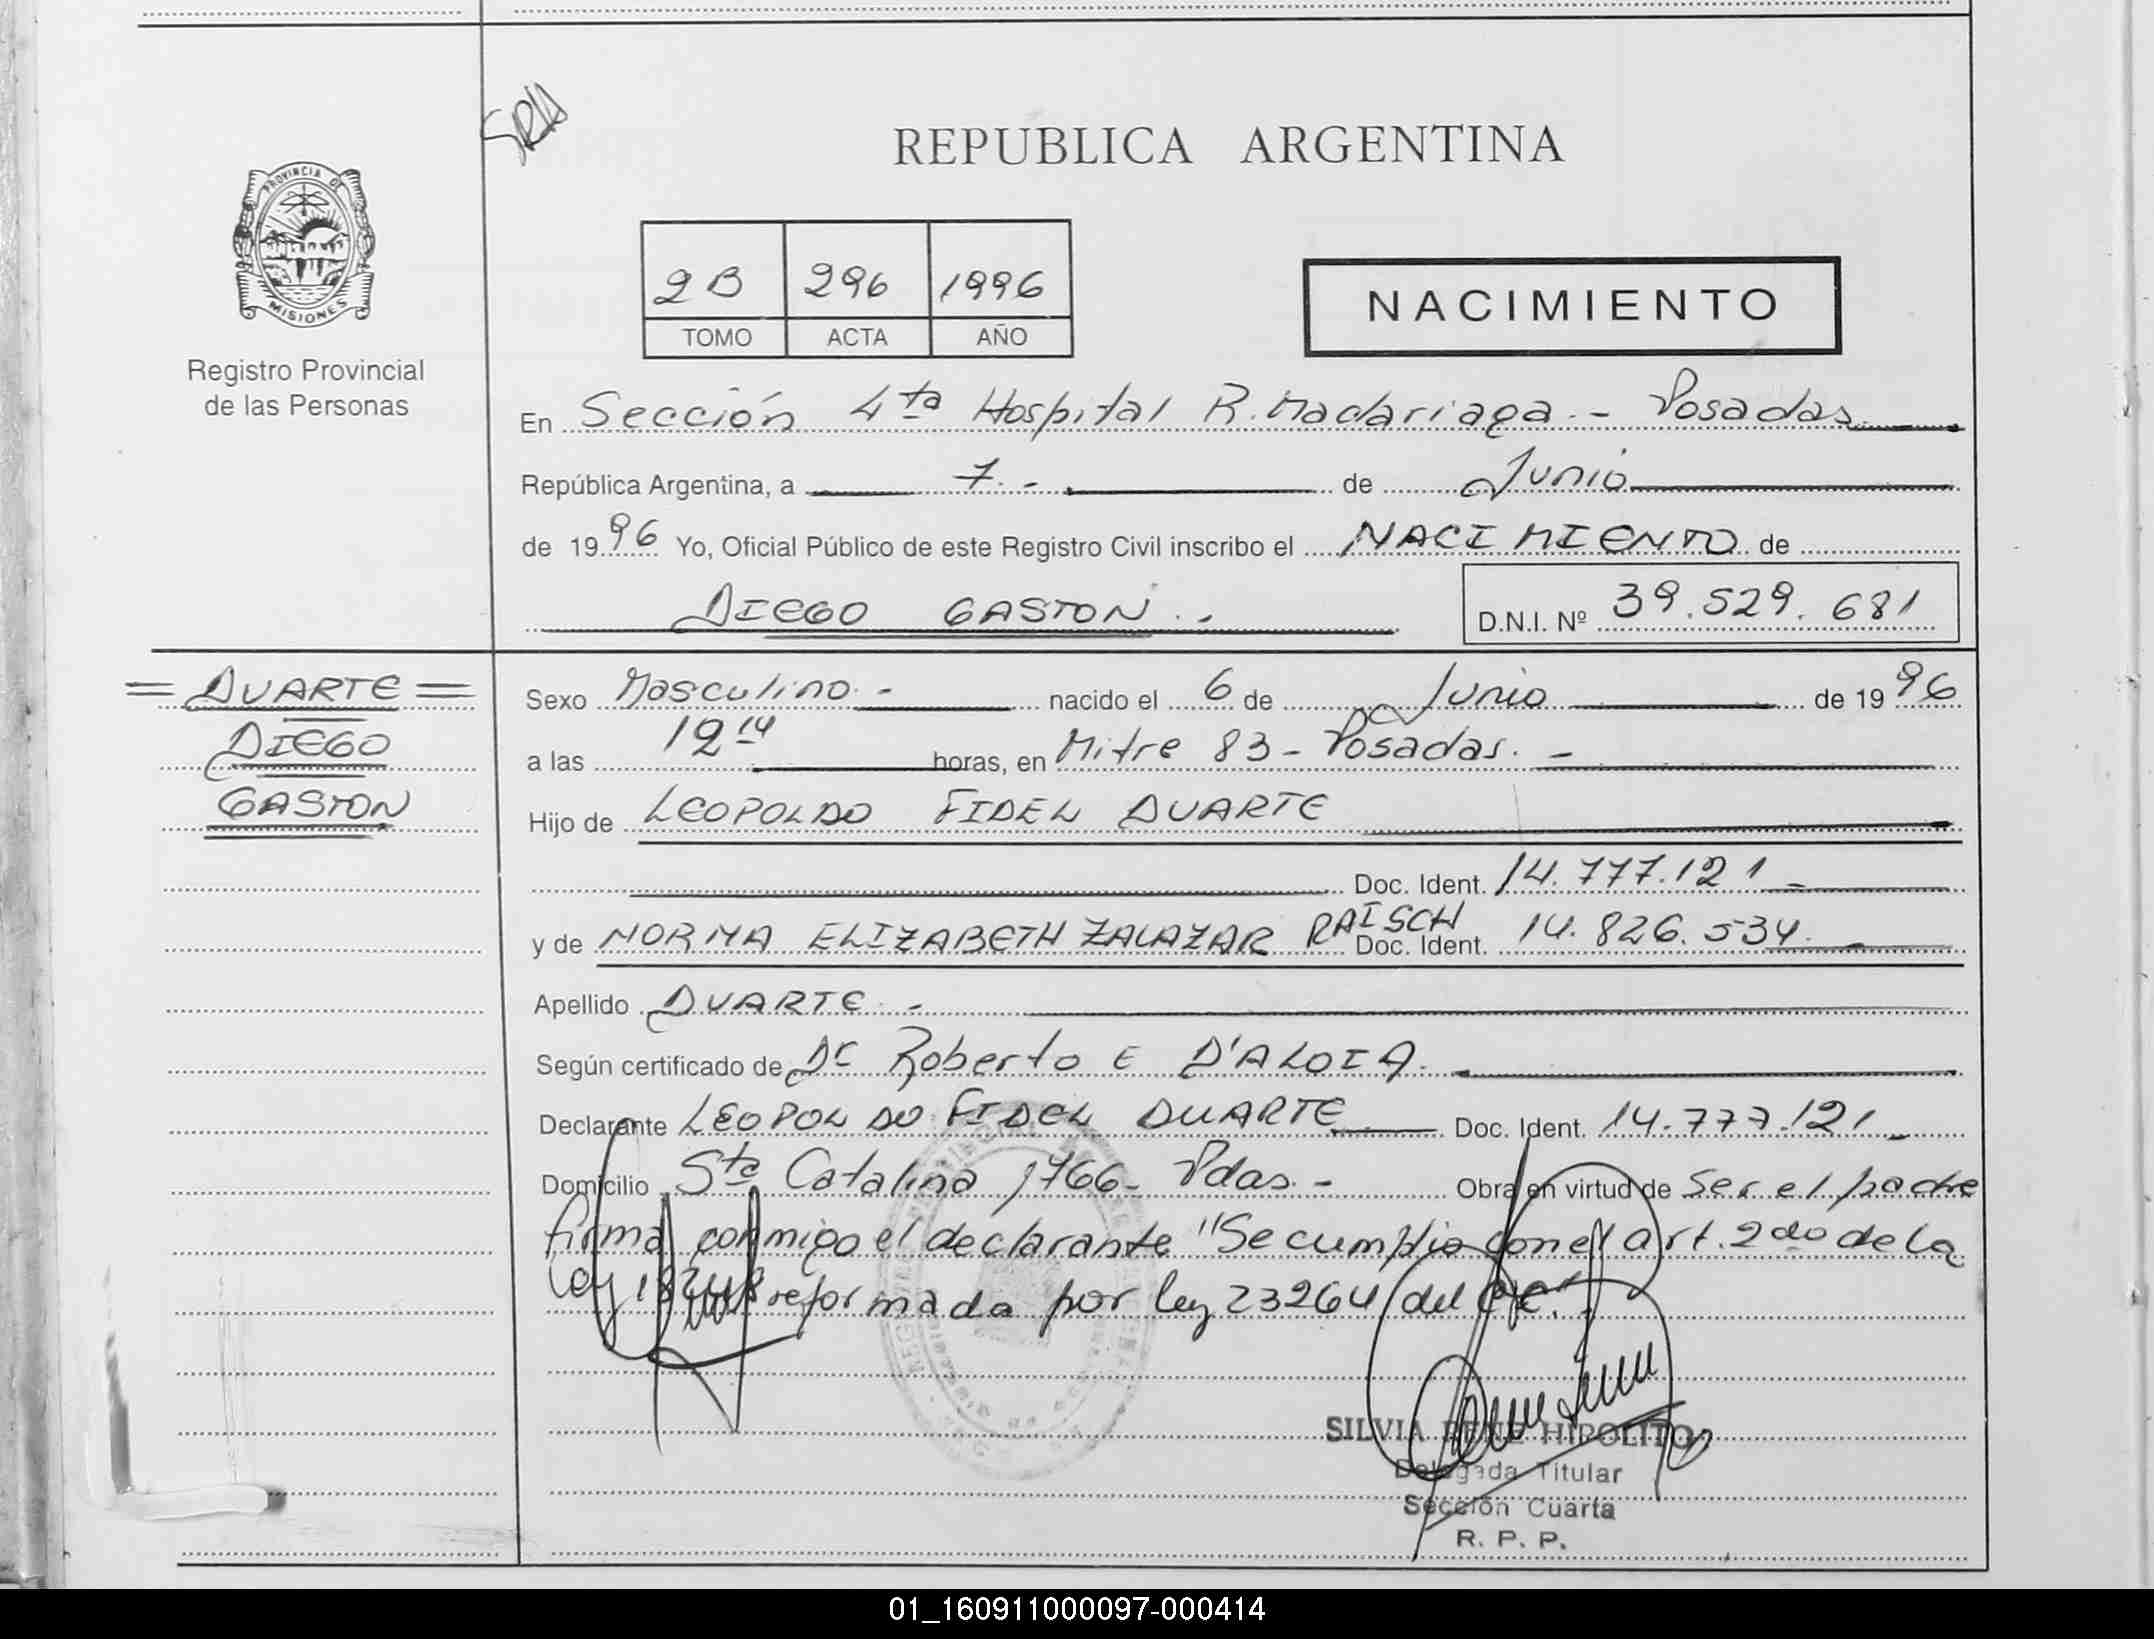 SRH
REPUBLICA ARGENTINA
PROVINCIA DE
MISIONES
2B 296 1996
TOMO ACTA AÑO
NACIMIENTO
Registro Provincial
de las Personas
En Sección 4ta Hospital R. Madariaga.- Posadas
República Argentina, a 7.- de Junio
de 1996 Yo, Oficial Público de este Registro Civil inscribo el NACIMIENTO de
DIEGO GASTON.-
D.N.I. Nº 39.529.681
= DUARTE =
DIEGO
GASTON
Sexo Masculino.- nacido el 6 de Junio de 1996
a las 12 14 horas, en Mitre 83 - Posadas.-
Hijo de LEOPOLDO FIDEL DUARTE
Doc. Ident. 14.777.121 -
y de NORMA ELIZABETH ZALAZAR RAISCH Doc. Ident. 14.826.534 -
Apellido DUARTE.-
Según certificado de Dr Roberto E D'ALOIA.
Declarante LEOPOLDO FIDEL DUARTE Doc. Ident. 14.777.121 -
Domicilio Sta Catalina 1766 - Pdas.- Obra en virtud de Ser el padre
firma conmigo el declarante "Se cumplio con el art. 2do de la
ley 18248 reformada por ley 23264 del
SILVIA RENE HIPOLITO
Delegada Titular
Sección Cuarta
R. P. P.
01_160911000097-000414